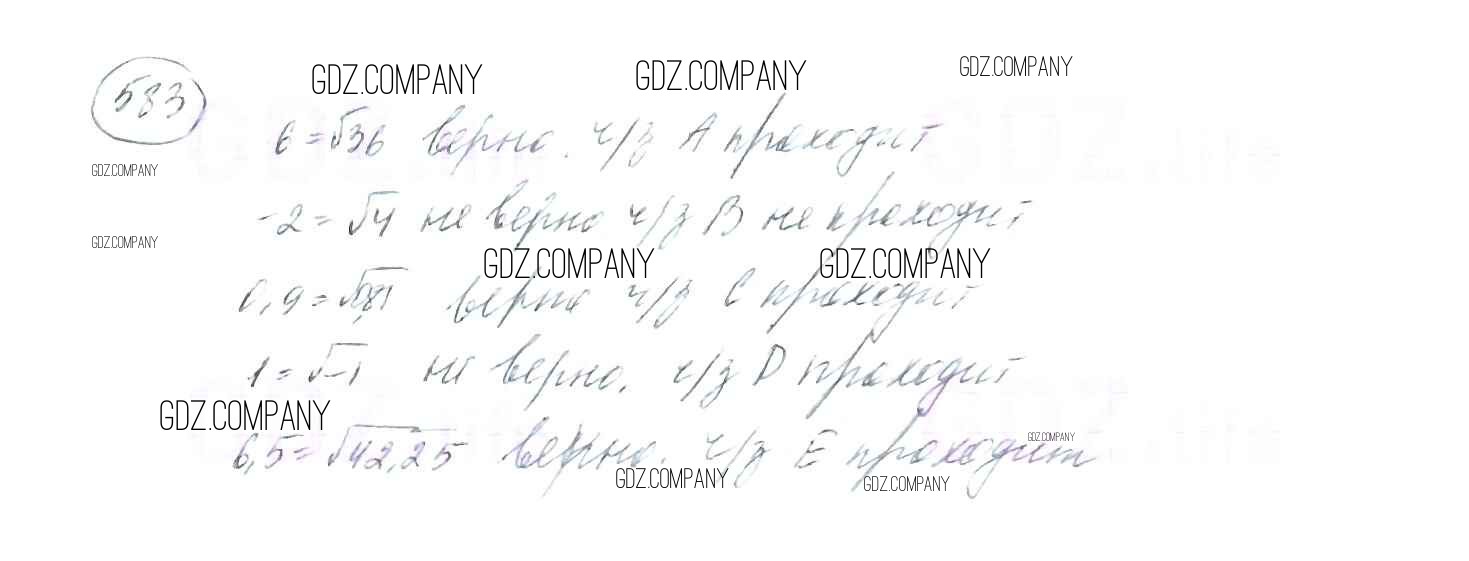 583
GDZ.COMPANY GDZ.COMPANY GDZ.COMPANY
6 = √36 верно. ч/з А проходит
GDZ.COMPANY
-2 = √4 не верно ч/з В не проходит
GDZ.COMPANY
GDZ.COMPANY GDZ.COMPANY
0,9 = √0,81 верно ч/з С проходит
1 = √-1 не верно. ч/з D проходит
GDZ.COMPANY
GDZ.COMPANY
6,5 = √42,25 верно. ч/з Е проходит
GDZ.COMPANY GDZ.COMPANY